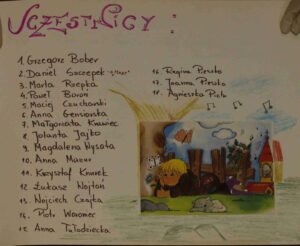 UCZESTNICY :
1. Grzegorz Bober
2. Daniel Szczepek
3. Marta Rzepka
4. Paweł Baron
5. Maciej Czuchowski
6. Anna Gensiorska
7. Małgorzata
8. Jolanta Jajko
9. Magdalena Wysota
10. Anna Mazur
11. Krzysztof
12. Łukasz Wojtoń
13. Wojciech Czajka
14. Piotr Waromer
15. Anna Tułodziecka
16. Regina Pieszko
17. Joanna Pieszko
18. Agnieszka